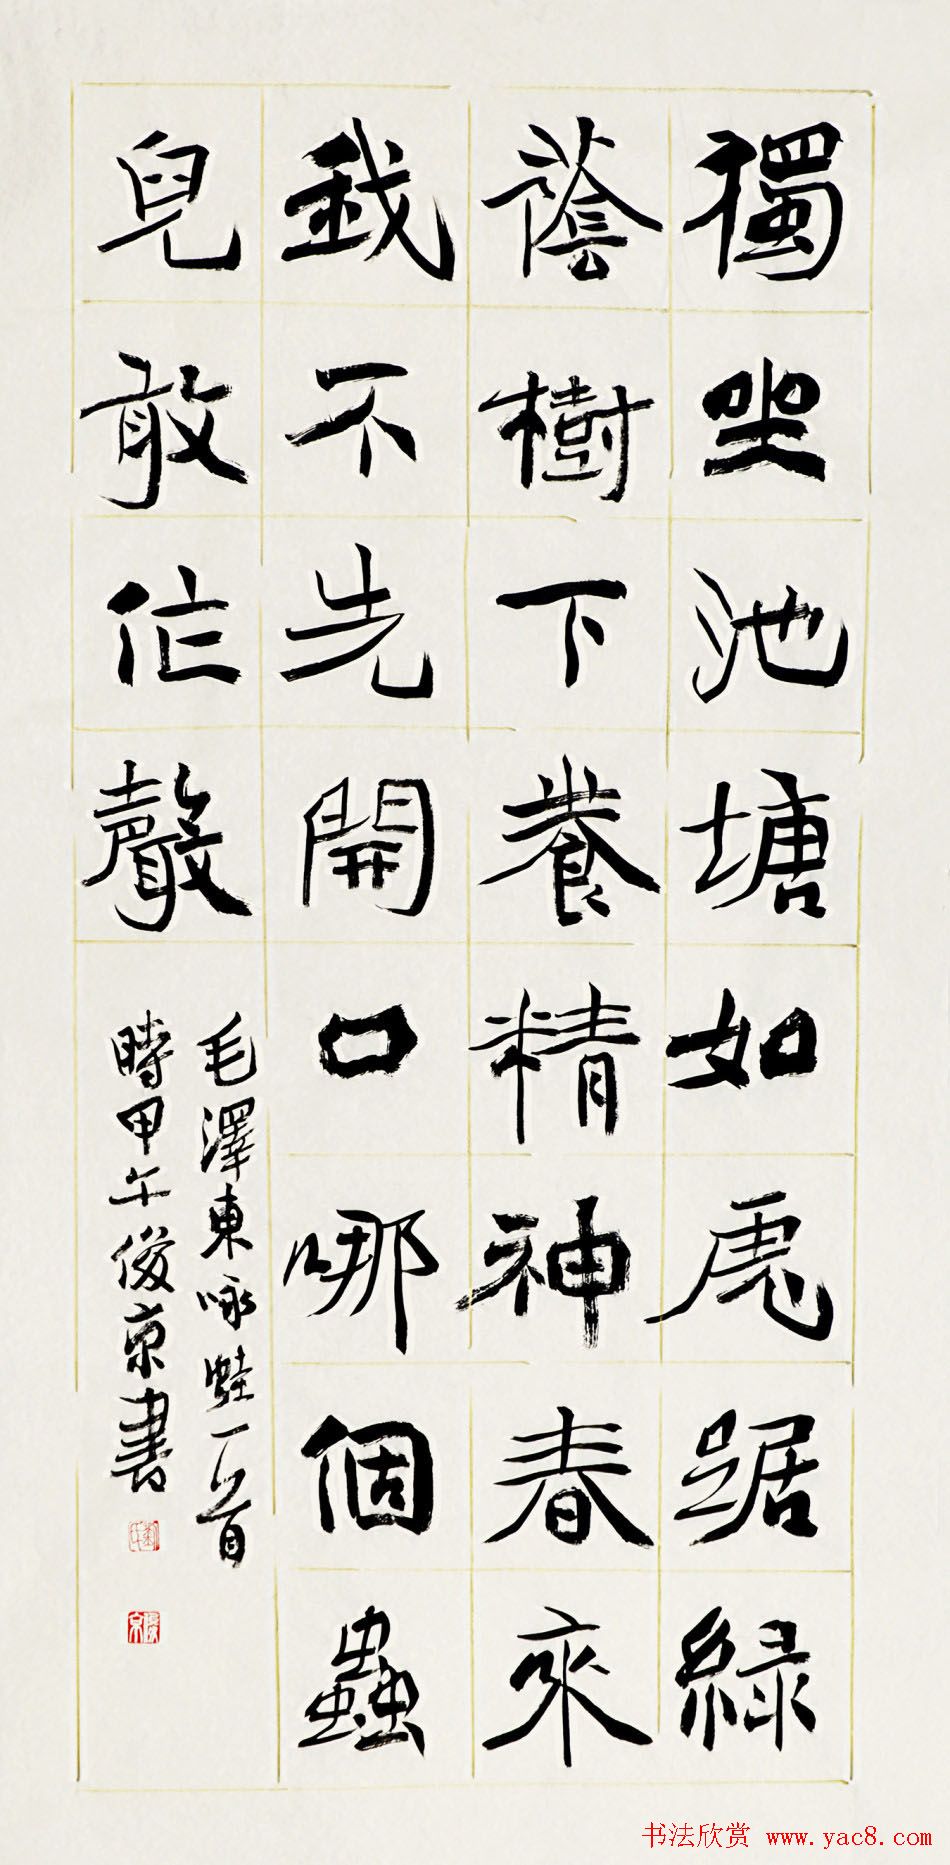 獨坐池塘如虎踞綠
蔭樹下養精神春來
我不先開口哪個蟲
兒敢作聲
毛澤東咏蛙一首
時甲午俊京書
俊京
书法欣赏 www.yac8.com